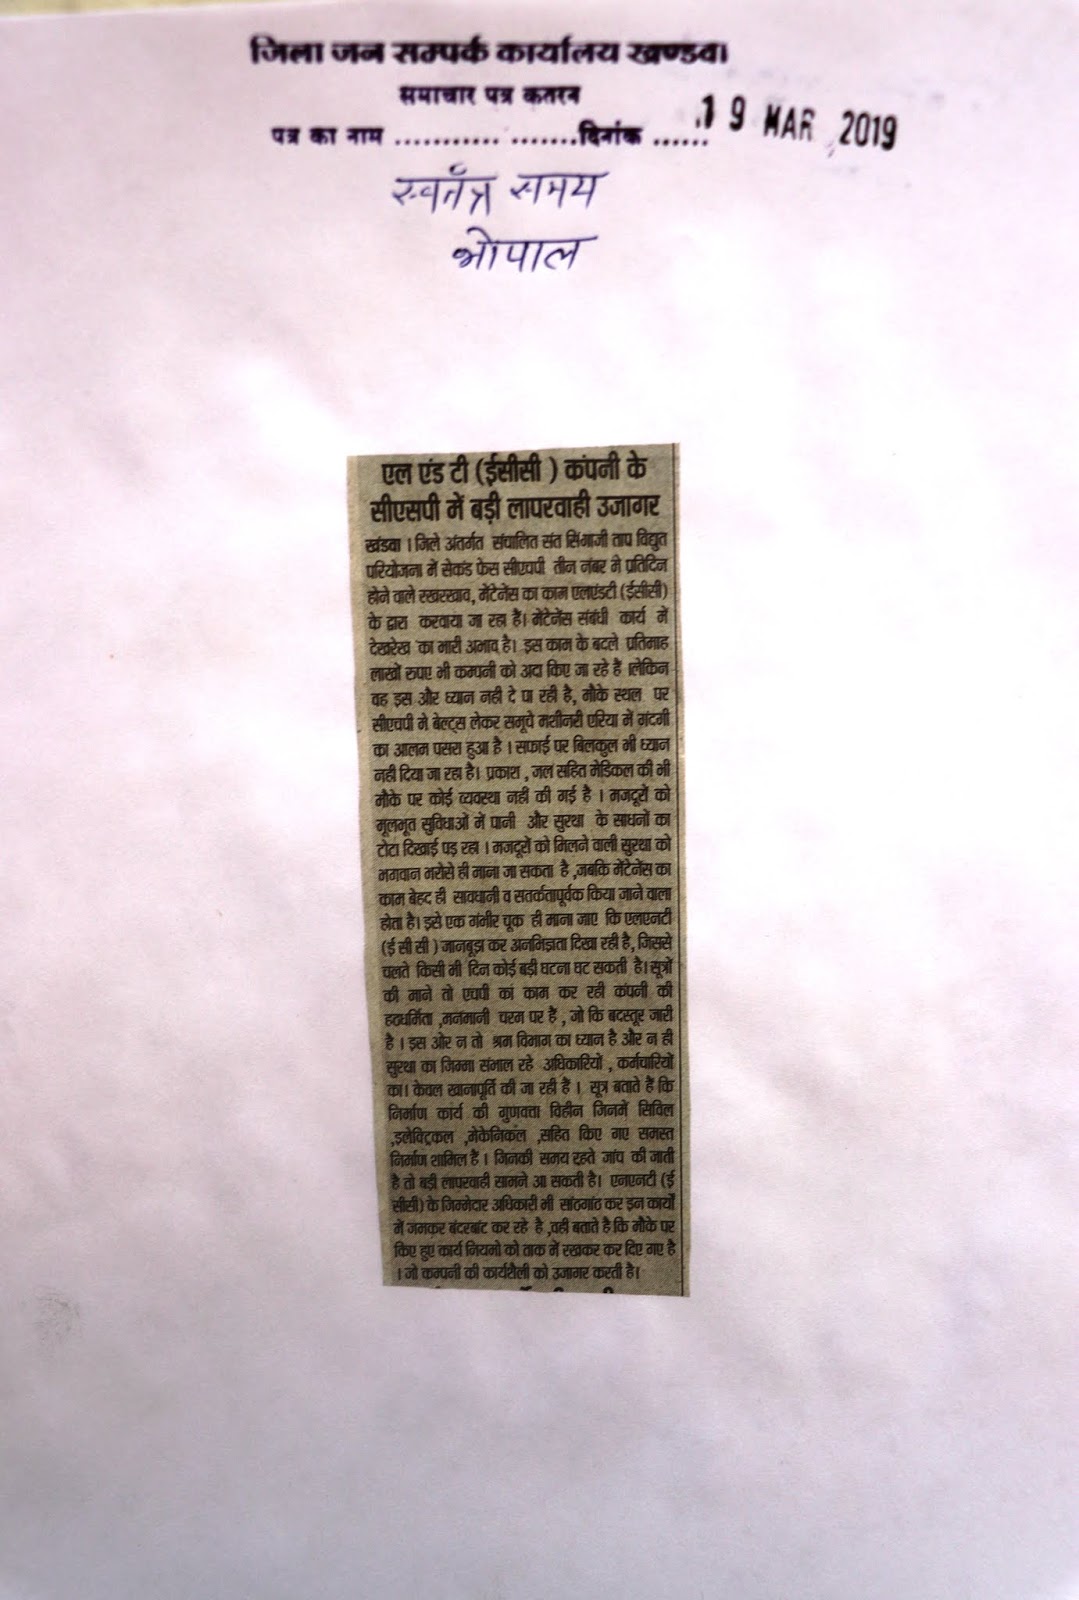 जिला जन सम्पर्क कार्यालय खण्डवा
समाचार पत्र कतरन
पत्र का नाम ............ .......दिनांक ...... 19 MAR 2019
स्वतंत्र समय
भोपाल
एल एंड टी (ईसीसी ) कंपनी के
सीएसपी में बड़ी लापरवाही उजागर
खंडवा । जिले अंतर्गत संचालित संत सिंगाजी ताप विद्युत
परियोजना में सेकंड फेस सीएचपी तीन नंबर मे प्रतिदिन
होने वाले रखरखाव, मेंटेनेंस का काम एलएंडटी (ईसीसी)
के द्वारा करवाया जा रहा हैं। मेंटेनेंस संबंधी कार्य में
देखरेख का भारी अभाव है। इस काम के बदले प्रतिमाह
लाखों रुपए भी कम्पनी को अदा किए जा रहे हैं ।लेकिन
वह इस और ध्यान नही दे पा रही है, मौके स्थल पर
सीएचपी मे बेल्ट्स लेकर समूचे मशीनरी एरिया में गंदगी
का आलम पसरा हुआ है । सफाई पर बिलकुल भी ध्यान
नही दिया जा रहा है। प्रकाश , जल सहित मेडिकल की भी
मौके पर कोई व्यवस्था नहीं की गई है । मजदूरों को
मूलभूत सुविधाओं में पानी और सुरक्षा के साधनों का
टोटा दिखाई पड़ रहा । मजदूरों को मिलने वाली सुरक्षा को
भगवान भरोसे ही माना जा सकता है ,जबकि मेंटेनेंस का
काम बेहद ही सावधानी व सतर्कतापूर्वक किया जाने वाला
होता है। इसे एक गंभीर चूक ही माना जाए कि एलएनटी
(ई सी सी ) जानबूझ कर अनभिज्ञता दिखा रही है, जिससे
चलते किसी भी दिन कोई बड़ी घटना घट सकती है। सूत्रों
की माने तो एचपी कां काम कर रही कंपनी की
हठधर्मिता ,मनमानी चरम पर हैं , जो कि बदस्तूर जारी
है । इस ओर न तो श्रम विभाग का ध्यान है और न ही
सुरक्षा का जिम्मा संभाल रहे अधिकारियों , कर्मचारियों
का। केवल खानापूर्ति की जा रही हैं । सूत्र बताते हैं कि
निर्माण कांर्य की गुणवत्ता विहीन जिनमें सिविल
,इलेक्ट्रिकल ,मेकेनिकल ,सहित किए गए समस्त
निर्माण शामिल हैं । जिनकी समय रहते जांच की जाती
है तो बड़ी लापरवाही सामने आ सकती है। एनएनटी (ई
सीसी) के जिम्मेदार अधिकारी भी सांठगांठ कर इन कार्यों
में जमकर बंदरबांट कर रहे है ,वही बताते है कि मौके पर
किए हुए कार्य नियमो को ताक में रखकर कर दिए गए है
। जो कम्पनी की कार्यशैली को उजागर करती है।